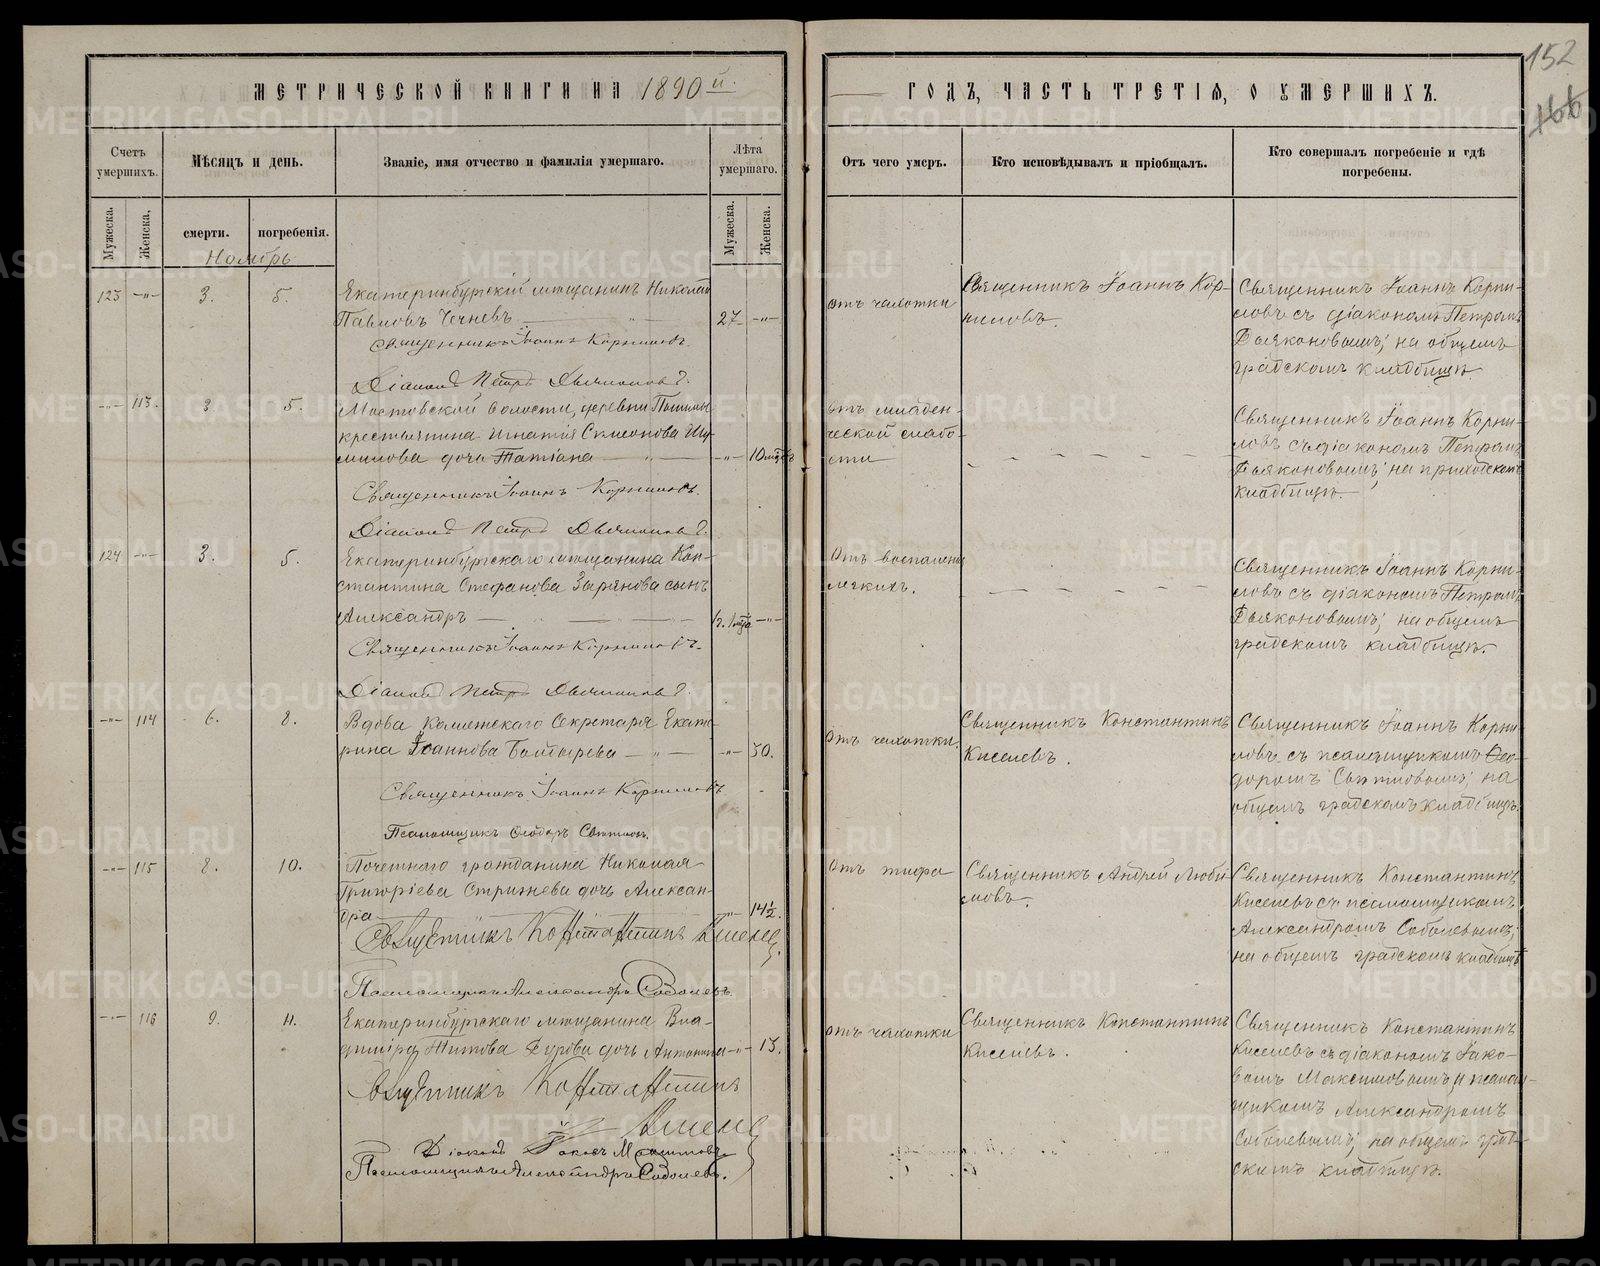 152
166
МЕТРИЧЕСКОЙ КНИГИ НА 1890 й.
ГОДЪ, ЧАСТЬ ТРЕТІЯ, О УМЕРШИХЪ.
Счетъ умершихъ.
Мѣсяцъ и день.
Званіе, имя отчество и фамилія умершаго.
Лѣта умершаго.
Отъ чего умеръ.
Кто исповѣдывалъ и пріобщалъ.
Кто совершалъ погребеніе и гдѣ
погребены.
Мужеска.
Женска.
смерти.
погребенія.
Мужеска.
Женска.
Ноябрь
123 —"— 3. 5.
Екатеринбургскій мѣщанинъ Николай
Павловъ Чечневъ — " — 27 —"—
Священникъ Іоаннъ Корниловъ.
Діаконъ Петръ Дьяконовъ.
отъ чахотки
Священникъ Іоаннъ Кор-
ниловъ.
Священникъ Іоаннъ Корни-
ловъ съ діакономъ Петромъ
Дьяконовымъ; на общемъ
градскомъ кладбищѣ.
—"— 113. 3 5.
Мостовской волости, деревни
крестьянина Игнатія Симеонова
дочь Татіана — " — —"— 10 мцѣвъ
Священникъ Іоаннъ Корниловъ.
Діаконъ Петръ Дьяконовъ.
отъ младен-
ческой слабо-
сти
Священникъ Іоаннъ Корни-
ловъ съ діакономъ Петромъ
Дьяконовымъ; на приходскомъ
кладбищѣ.
124 —"— 3. 5.
Екатеринбургскаго мѣщанина Кон-
стантина Стефанова Зырянова сынъ
Александръ — " — —"—
Священникъ Іоаннъ Корниловъ.
Діаконъ Петръ Дьяконовъ.
Отъ воспаленія
легкихъ.
Священникъ Іоаннъ Корни-
ловъ съ діакономъ Петромъ
Дьяконовымъ; на общемъ
градскомъ кладбищѣ.
—"— 114 6. 8.
Вдова Секретаря Екате-
рина Іоаннова — " — —"— 50.
Священникъ Іоаннъ Корниловъ
Псаломщикъ Ѳеодоръ
Отъ чахотки.
Священникъ Константинъ
Киселевъ.
Священникъ Іоаннъ Корни-
ловъ съ псаломщикомъ Ѳео-
доромъ на
общемъ градскомъ кладбищѣ.
—"— 115 8. 10.
Почетнаго гражданина Николая
Григоріева Стрижева дочь Алексан-
дра —"— 14½.
Священникъ Константинъ Киселевъ
Псаломщикъ Александръ Соболевъ.
Отъ тифа
Священникъ Андрей Люби-
мовъ.
Священникъ Константинъ
Киселевъ съ псаломщикомъ
Александромъ Соболевымъ;
на общемъ градскомъ кладбищѣ
—"— 116 9. 11.
Екатеринбургскаго мѣщанина Вла-
диміра Титова дочь Антонина —"— 13.
Священникъ Константинъ
Киселевъ
Діаконъ Іаковъ Максимовъ
Псаломщикъ Александръ Соболевъ.
отъ чахотки
Священникъ Константинъ
Киселевъ.
Священникъ Константинъ
Киселевъ съ діакономъ Іако-
вомъ Максимовымъ и псалом-
щикомъ Александромъ
Соболевымъ; на общемъ град-
скомъ кладбищѣ.
METRIKI.GASO-URAL.RU